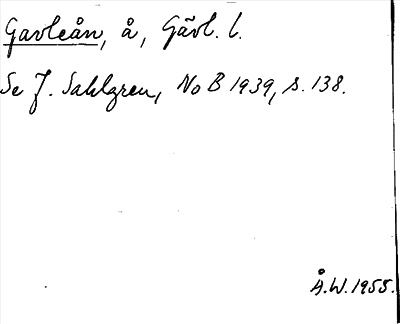 Gavleån, å, Gävl. l.
Se J. Sahlgren, No B 1939, s. 138.
Å.W. 1955.